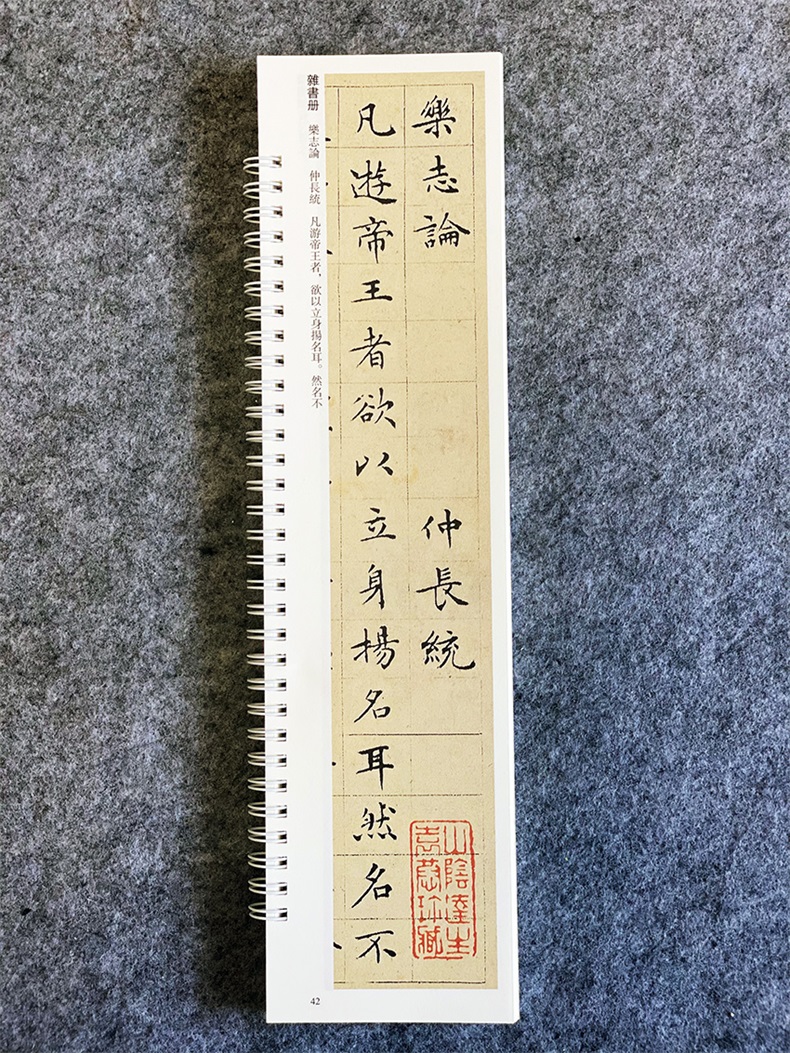 樂志論 仲長統
凡遊帝王者欲以立身揚名耳然名不
雜書册 樂志論 仲長統 凡游帝王者，欲以立身揚名耳。然名不
42